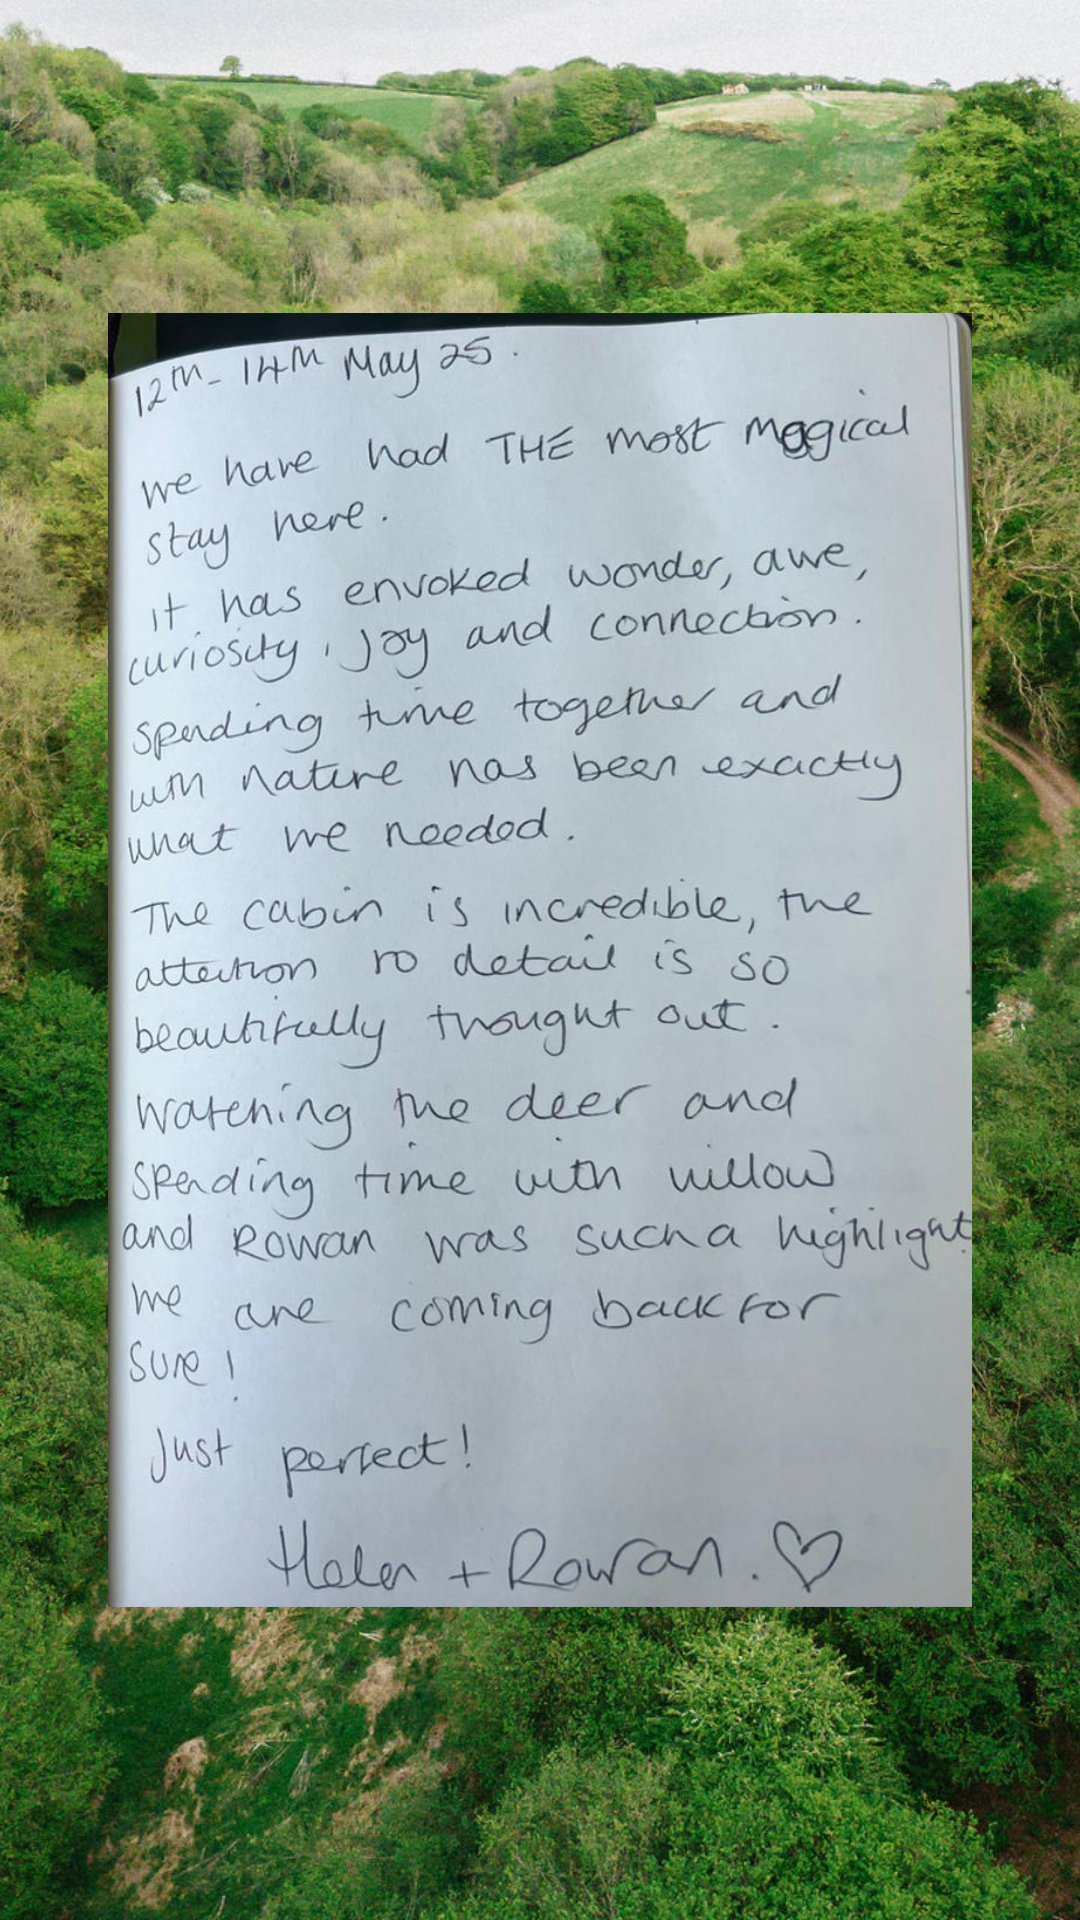 12th - 14th May 25.
We have had THE most magical
stay here.
it has envoked wonder, awe,
curiosity, joy and connection.
Spending time together and
with nature has been exactly
what we needed.
The cabin is incredible, the
attention to detail is so
beautifully thought out.
Watching the deer and
spending time with willow
and Rowan was such a highlight
we are coming back for
sure!
Just perfect!
Helen + Rowan. ♡